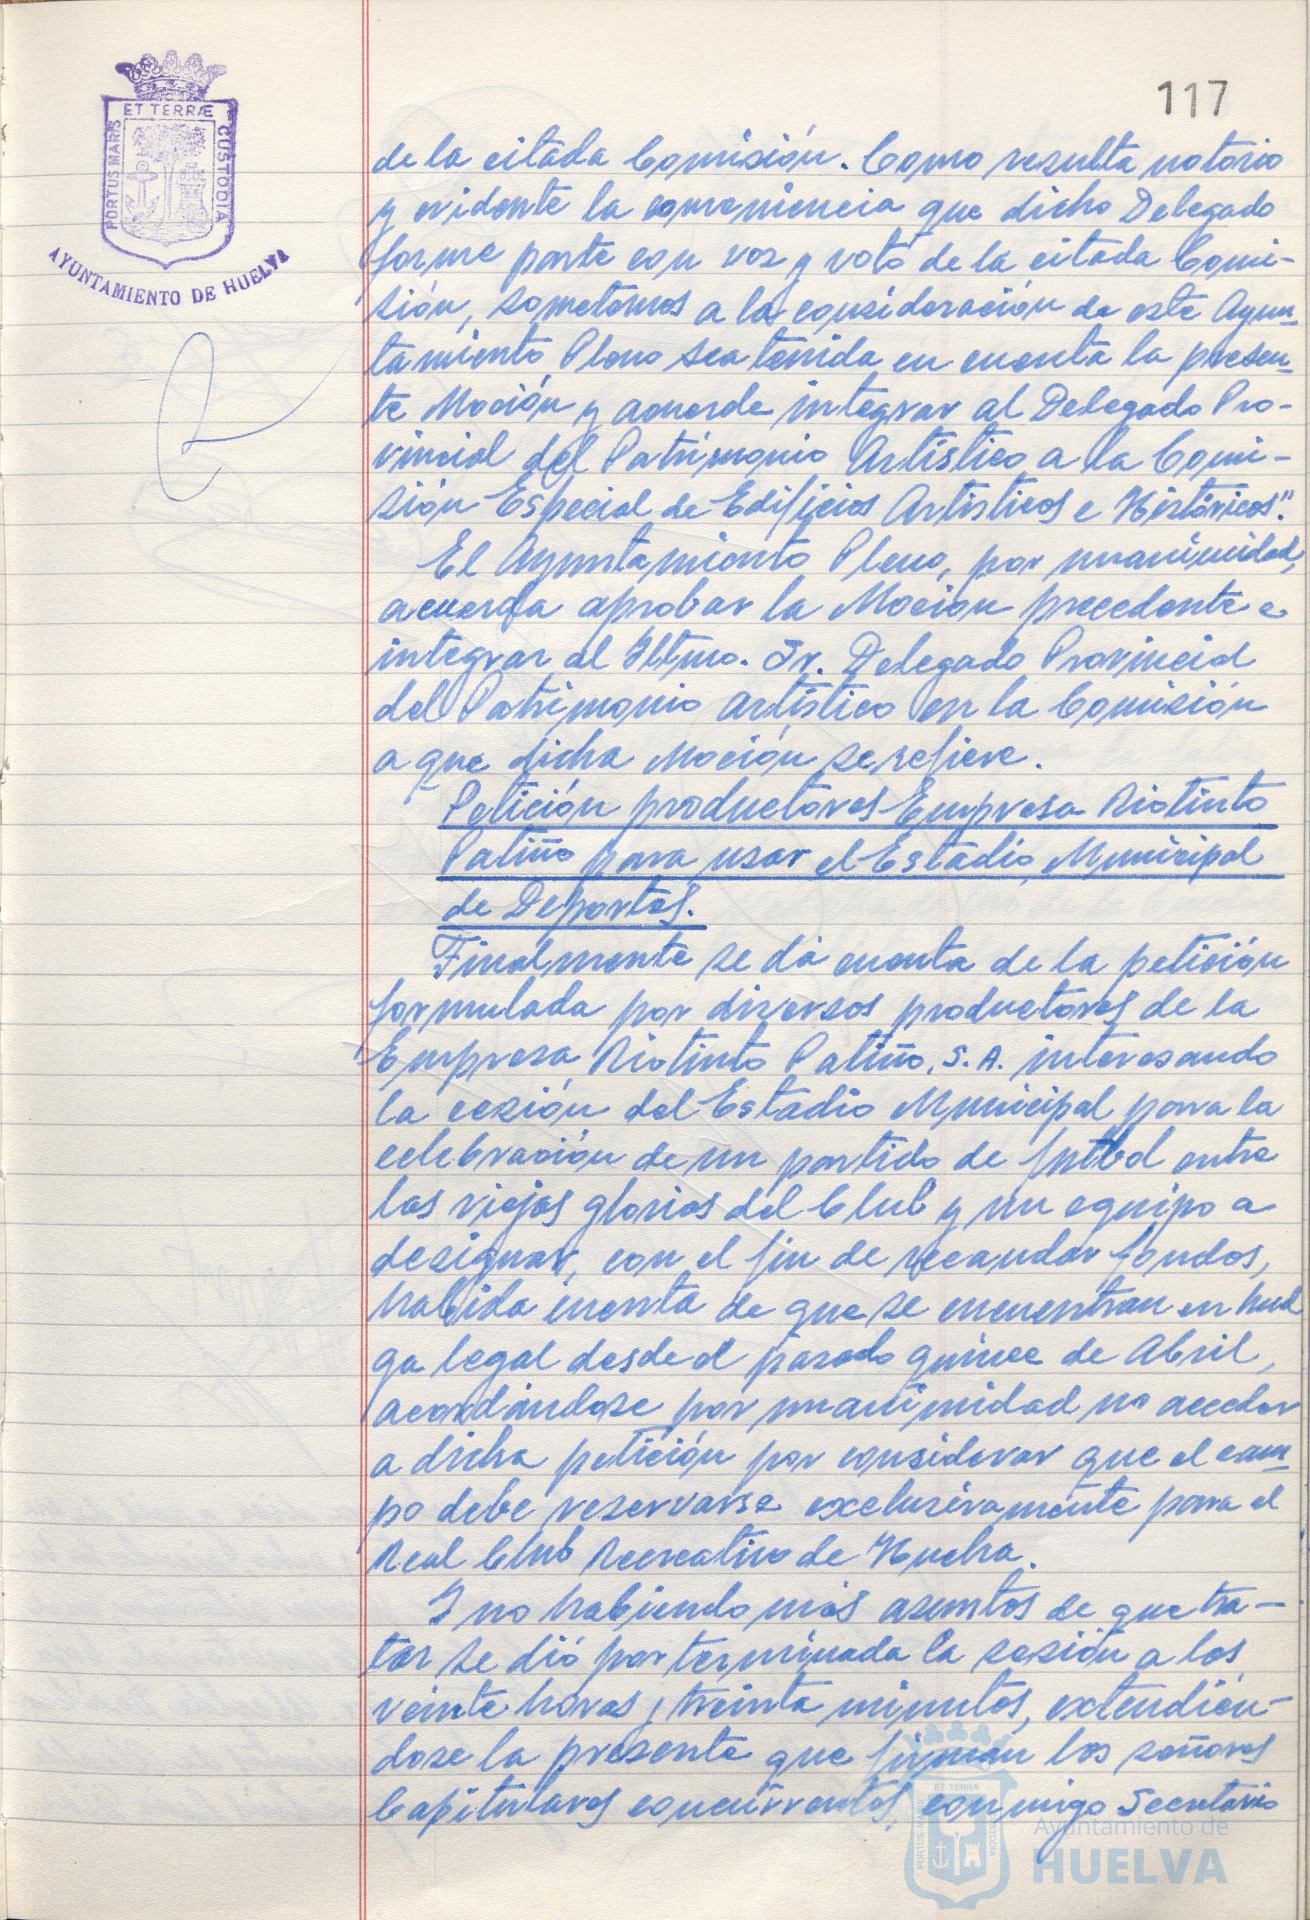 117
ET TERRÆ
PORTUS MARIS
CUSTODIA
AYUNTAMIENTO DE HUELVA
de la citada Comisión. Como resulta notorio
y evidente la conveniencia que dicho Delegado
forme parte con voz y voto de la citada Comi-
sión, sometemos a la consideración de este Ayun-
tamiento Pleno sea tenida en cuenta la presen-
te Moción y acuerde integrar al Delegado Pro-
vincial del Patrimonio Artístico a la Comi-
sión Especial de Edificios Artísticos e Históricos".
El Ayuntamiento Pleno, por unanimidad,
acuerda aprobar la Moción precedente e
integrar al Iltmo. Sr. Delegado Provincial
del Patrimonio Artístico en la Comisión
a que dicha Moción se refiere.
Petición productores Empresa Riotinto
Patiño para usar el Estadio Municipal
de Deportes.
Finalmente se dá cuenta de la petición
formulada por diversos productores de la
Empresa Riotinto Patiño, S.A. interesando
la cesión del Estadio Municipal para la
celebración de un partido de futbol entre
las viejas glorias del Club y un equipo a
designar, con el fin de recaudar fondos,
habida cuenta de que se encuentran en huel
ga legal desde el pasado quince de Abril,
acordándose por unanimidad no acceder
a dicha petición por considerar que el cam-
po debe reservarse exclusivamente para el
Real Club Recreativo de Huelva.
Y no habiendo más asuntos de que tra-
tar se dió por terminada la sesión a las
veinte horas y treinta minutos, extendién-
dose la presente que firman los señores
Capitulares concurrentes, conmigo Secretario
ET TERRA
PORTUS MARIS
CUSTODIA
Ayuntamiento de
HUELVA